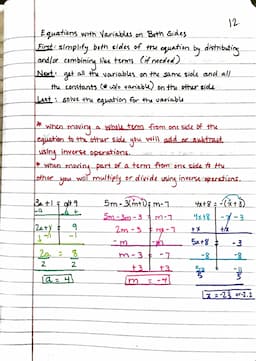 12
Equations with Variables on Both Sides
First: simplify both sides of the equation by distributing
and/or combining like terms (if needed)
Next: get all the variables on the same side and all
the constants (# w/o variable) on the other side
Last: solve the equation for the variable
* when moving a whole term from one side of the
equation to the other side you will add or subtract
using inverse operations.
* when moving part of a term from one side to the
other you will multiply or divide using inverse operations.
3a + 1 = a + 9
2a + 1 9
-1 -1
2a = 8
2 2
a = 4
5m - 3(m+1) = m - 7
5m - 3m - 3 = m - 7
2m - 3 = m - 7
-m -m
m - 3 = -7
+3 +3
m = -4
4x + 8 = -(x + 3)
4x + 8 -x - 3
+x +x
5x + 8 = -3
-8 -8
5x -11
5 5